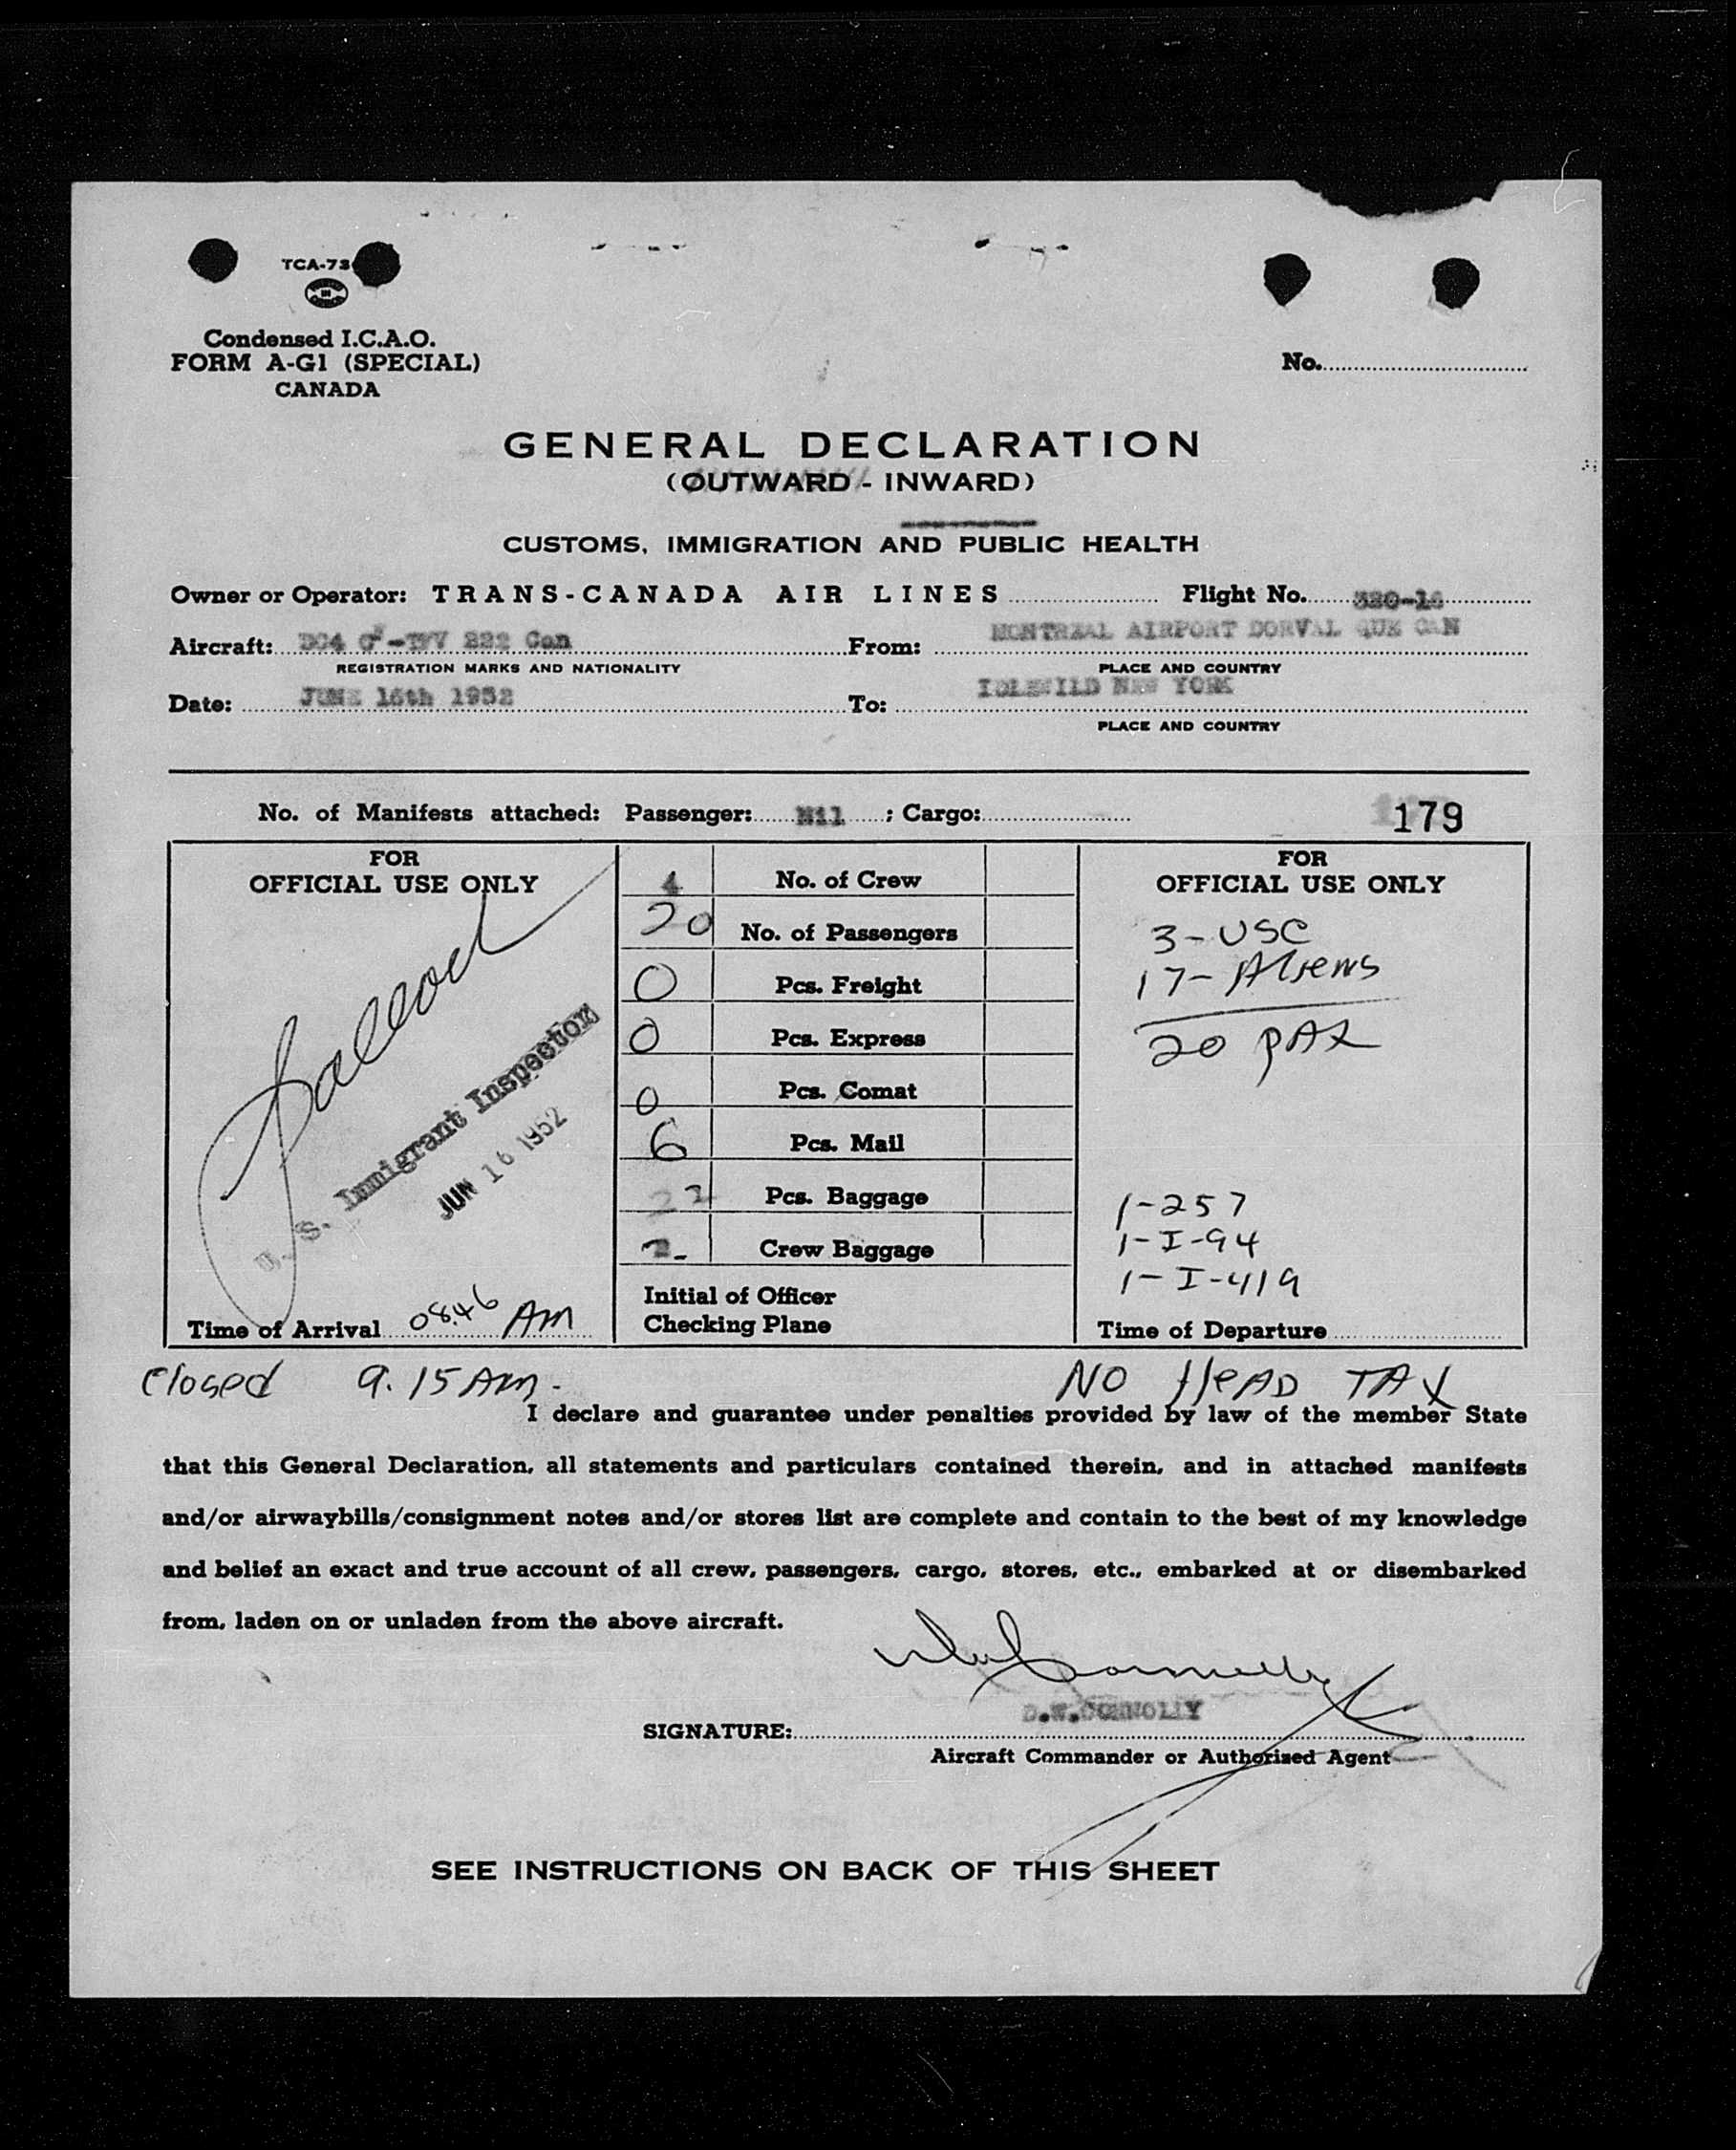 TCA-73
Condensed I.C.A.O.
FORM A-G1 (SPECIAL)
CANADA
No.
GENERAL DECLARATION
(OUTWARD - INWARD)
CUSTOMS, IMMIGRATION AND PUBLIC HEALTH
Owner or Operator: TRANS-CANADA AIR LINES Flight No. 320-16
Aircraft: DC4 CF-TFV 222 Can From: MONTREAL AIRPORT DORVAL QUE CAN
REGISTRATION MARKS AND NATIONALITY PLACE AND COUNTRY
Date: JUNE 16th 1952 To: IDLEWILD NEW YORK
PLACE AND COUNTRY
No. of Manifests attached: Passenger: Nil ; Cargo: 179
FOR
OFFICIAL USE ONLY
U. S. Immigrant Inspector
JUN 16 1952
Time of Arrival 0846 AM
4 No. of Crew
20 No. of Passengers
0 Pcs. Freight
0 Pcs. Express
0 Pcs. Comat
6 Pcs. Mail
22 Pcs. Baggage
2 Crew Baggage
Initial of Officer
Checking Plane
FOR
OFFICIAL USE ONLY
3-USC
17-Aliens
20 PAX
1-257
1-I-94
1-I-419
Time of Departure
Closed 9.15 AM. NO HEAD TAX
I declare and guarantee under penalties provided by law of the member State
that this General Declaration, all statements and particulars contained therein, and in attached manifests
and/or airwaybills/consignment notes and/or stores list are complete and contain to the best of my knowledge
and belief an exact and true account of all crew, passengers, cargo, stores, etc., embarked at or disembarked
from, laden on or unladen from the above aircraft.
D.W.CONNOLLY
SIGNATURE:
Aircraft Commander or Authorized Agent
SEE INSTRUCTIONS ON BACK OF THIS SHEET